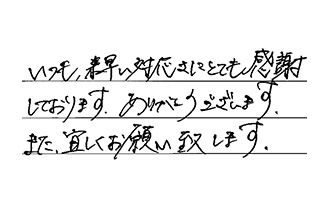 いつも、素早い対応さにとても感謝
しております。ありがとうございます。
また、宜しくお願い致します。